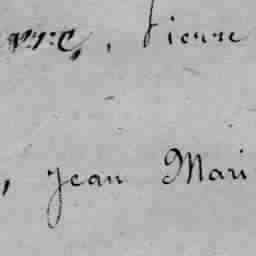 , Pierre
, Jean Mari